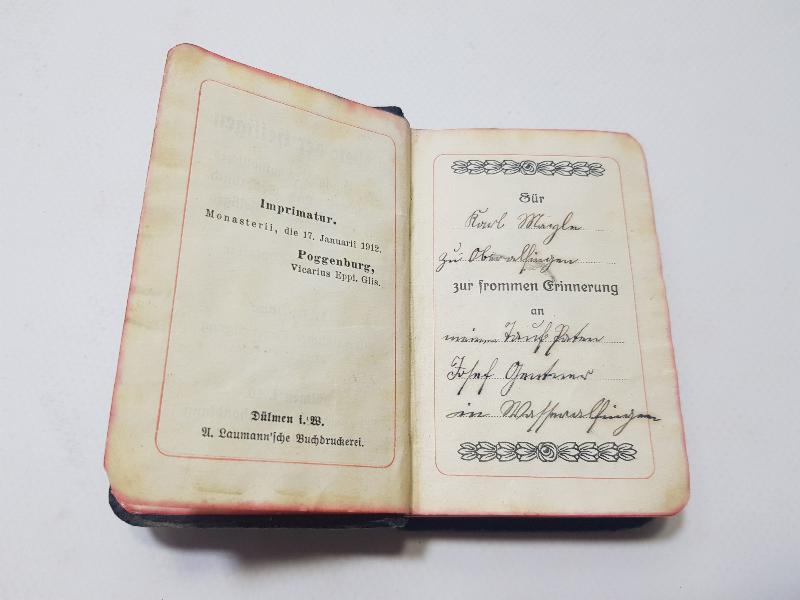 Imprimatur.
Monasterii, die 17. Januarii 1912.
Poggenburg,
Vicarius Eppi. Glis.
Dülmen i. W.
A. Laumann'sche Buchdruckerei.
Für
Karl Mayle
zu Oberalfingen
zur frommen Erinnerung
an
meinen Tauf Paten
Josef Gentner
in Wasseralfingen